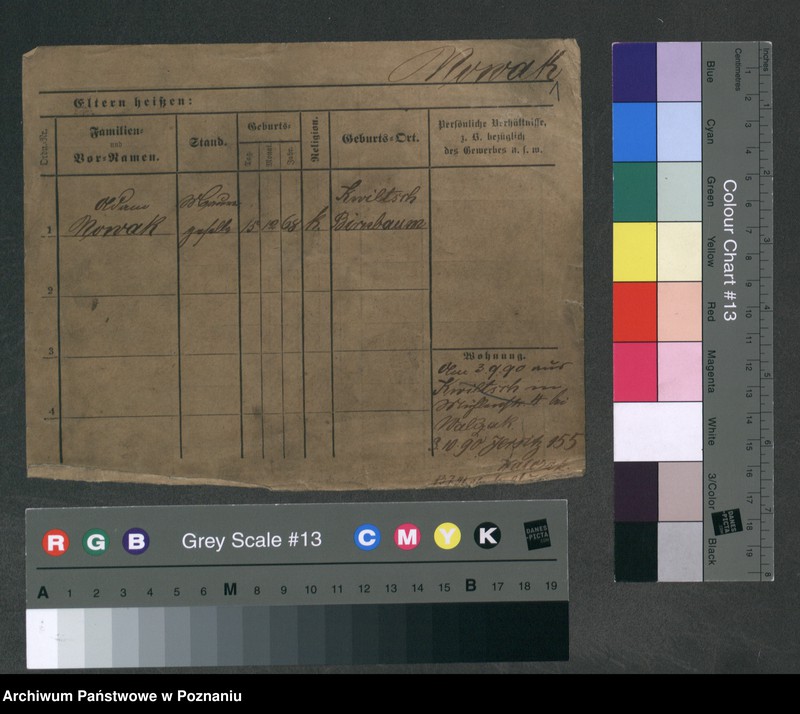 Nowak
Eltern heißen:
Familien-
und
Vor-Namen.
Stand.
Geburts-
Tag.
Monat.
Jahr.
Religion.
Geburts-Ort.
Persönliche Verhältnisse,
z. B. bezüglich
des Gewerbes u. s. w.
1
Adam
Nowak
geselle
15
12
68
k.
Kwiltsch
Birnbaum
2
3
4
Wohnung.
3 9 90 aus
Kwiltsch
bei
Walzak
3.10.90 155
Grey Scale #13
R G B C M Y K
DANES
-PICTA
.COM
A 1 2 3 4 5 6 M 8 9 10 11 12 13 14 15 B 17 18 19
Colour Chart #13
Blue
Cyan
Green
Yellow
Red
Magenta
White
3/Color
Black
Centimetres
Inches
1 2 3 4 5 6 7 8 9 10 11 12 13 14 15 16 17 18 19
1 2 3 4 5 6 7 8
DANES
-PICTA
.COM
Archiwum Państwowe w Poznaniu